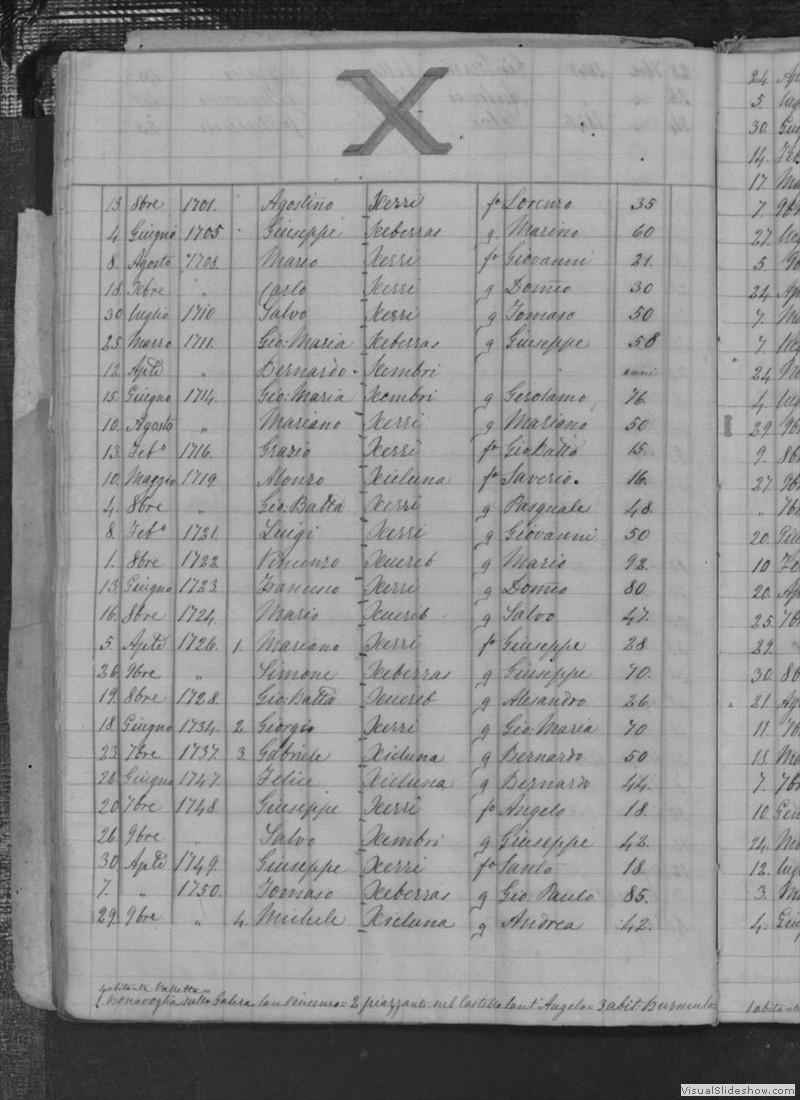 X
13. 8bre 1701. " Agostino Xerri fo Lorenzo 35
4 Giugno 1705 " Giuseppe Xeberras q Marino 60
8. Agosto 1708. Marco Xerri fo Giovanni 21.
18. Xbre " Carlo Xerri q Domco 30
30 luglio 1710 Salvo Xerri q Tomaso 50
25 Marzo 1711. Gio: Maria Xeberras q Giuseppe 58
12. Aple " Bernardo. Xembri anni
15. Giugno 1714. Gio: Maria Xembri q Gerolamo 76
10. Agosto " Mariano Xerri q Mariano 50
13. Febo 1716. Grazio Xerri fo Gio Batta 15.
10. Maggio 1719. Alonzo Xicluna fo Saverio. 16.
4. 8bre " Gio: Batta Xerri q Pasquale 48.
8. Febo 1721. Luigi Xerri q Giovanni 50
1. 8bre 1722. Vincenzo Xuereb q Mario 92.
13. Giugno 1723. Francesco Xerri q Domco 80
16. 8bre 1724. Mario Xuereb q Salvo 47.
5. Aple 1726. 1. Mariano Xerri fo Giuseppe 28
26. 9bre " Simone Xeberras q Giuseppe 70.
19. 8bre 1728. Gio: Batta Xuereb q Alesandro 26.
18. Giugno 1734. 2. Giorgio Xerri q Gio: Maria 70
23. 7bre 1737. 3. Gabriele Xicluna q Bernardo 50
26 Giugno 1747. Felice Xicluna q Bernardo 44.
20 7bre 1748. Giuseppe Xerri fo Angelo 18.
26. 9bre " Salvo Xembri q Giuseppe 42.
30 Aple 1749. Giuseppe Xerri fo Santo 18.
7. " 1750. Tomaso Xeberras q Gio: Paulo 85.
29. 9bre " 4. Michele Xicluna q Andrea 42.
4 abitante Valletta =
1. Bonavoglia sulla Galera San Vincenzo = 2 piazzante nel Castello Sant' Angelo = 3 abit:
24. Ap
5.
30. Giu
14. Fe
17. Ma
7. 9b
27.
5. 9
24. Ap
7. M
7.
24 M
4
29. 9b
9. 8b
27. 9b
" 7b
20. Giu
10 Fe
20. Ap
25. 7b
29.
30. 8b
21. Ag
11. 7b
18. Ma
7. 7b
10. Gen
24. Ma
12. lug
3. M
4. Giu
1 abitante
VisualSlideshow.com